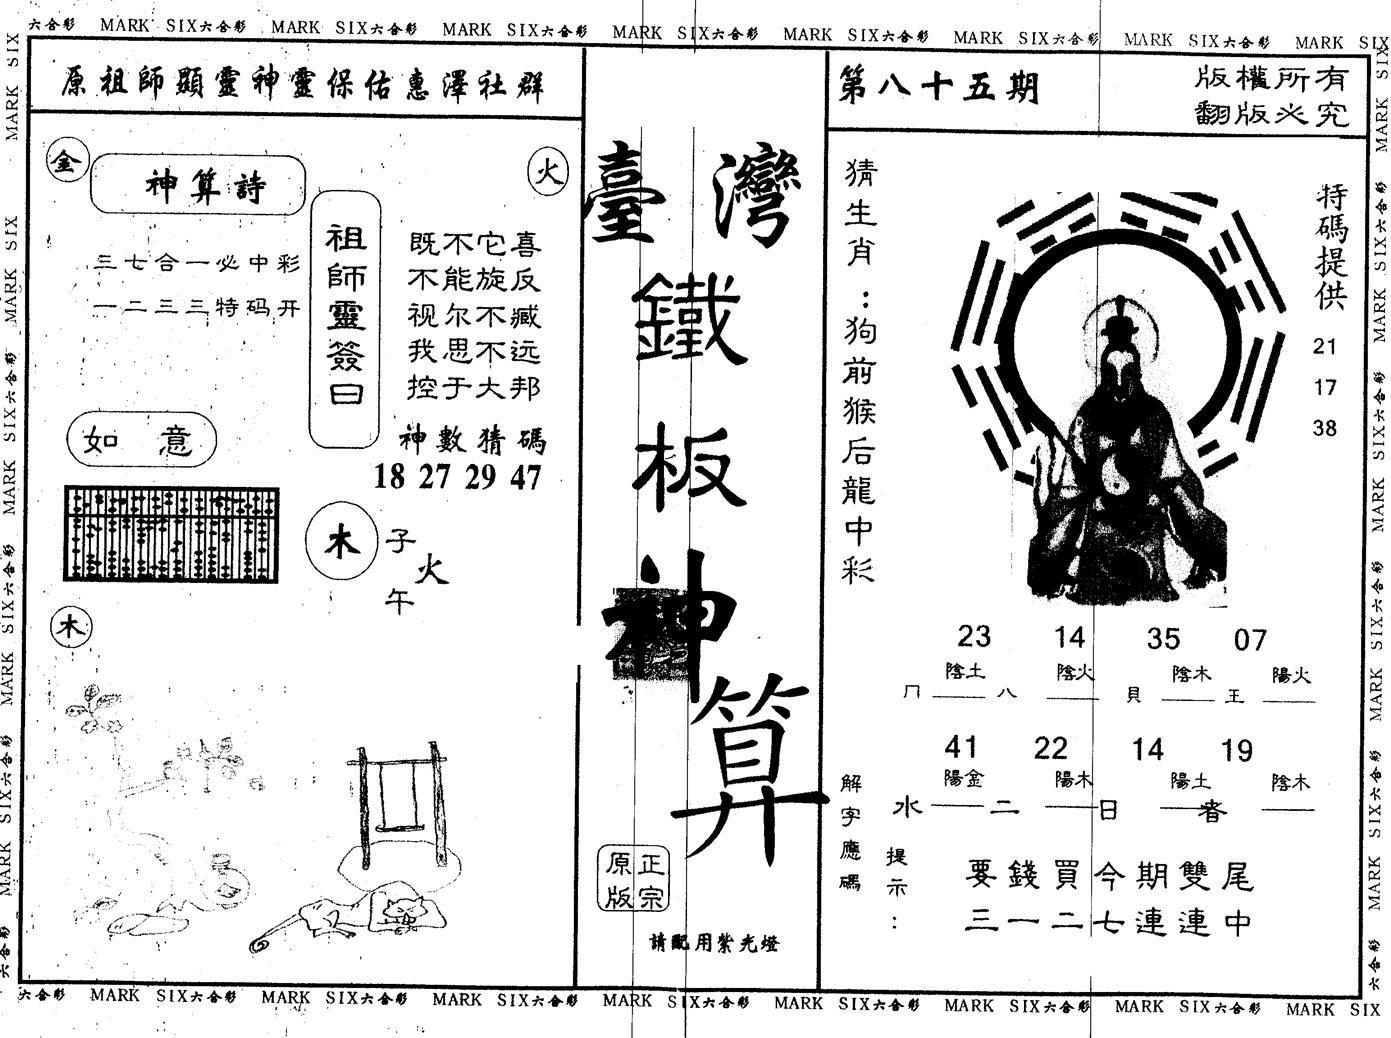 六合彩 MARK SIX六合彩 MARK SIX六合彩 MARK SIX六合彩 MARK SIX六合彩 MARK SIX六合彩 MARK SIX六合彩 MARK SIX六合彩 MARK SIX
原祖師顯靈神靈保佑惠澤社群
金
神算詩
火
三七合一必中彩
一二三三特码开
祖師靈簽曰
既不它喜
不能旋反
视尔不臧
我思不远
控于大邦
神數猜碼
18 27 29 47
如意
木
子
火
午
木
臺灣
鐵板神算
正宗
原版
請配用紫光燈
第八十五期
版權所有
翻版必究
猜生肖：狗前猴后龍中彩
特碼提供
21
17
38
23 14 35 07
陰土 陰火 陰木 陽火
冂 八 貝 王
41 22 14 19
陽金 陽木 陽土 陰木
水 二 日 者
解字應碼
提示：
要錢買今期雙尾
三一二七連連中
六合彩 MARK SIX六合彩 MARK SIX六合彩 MARK SIX六合彩 MARK SIX六合彩 MARK SIX六合彩 MARK SIX六合彩 MARK SIX六合彩 MARK SIX